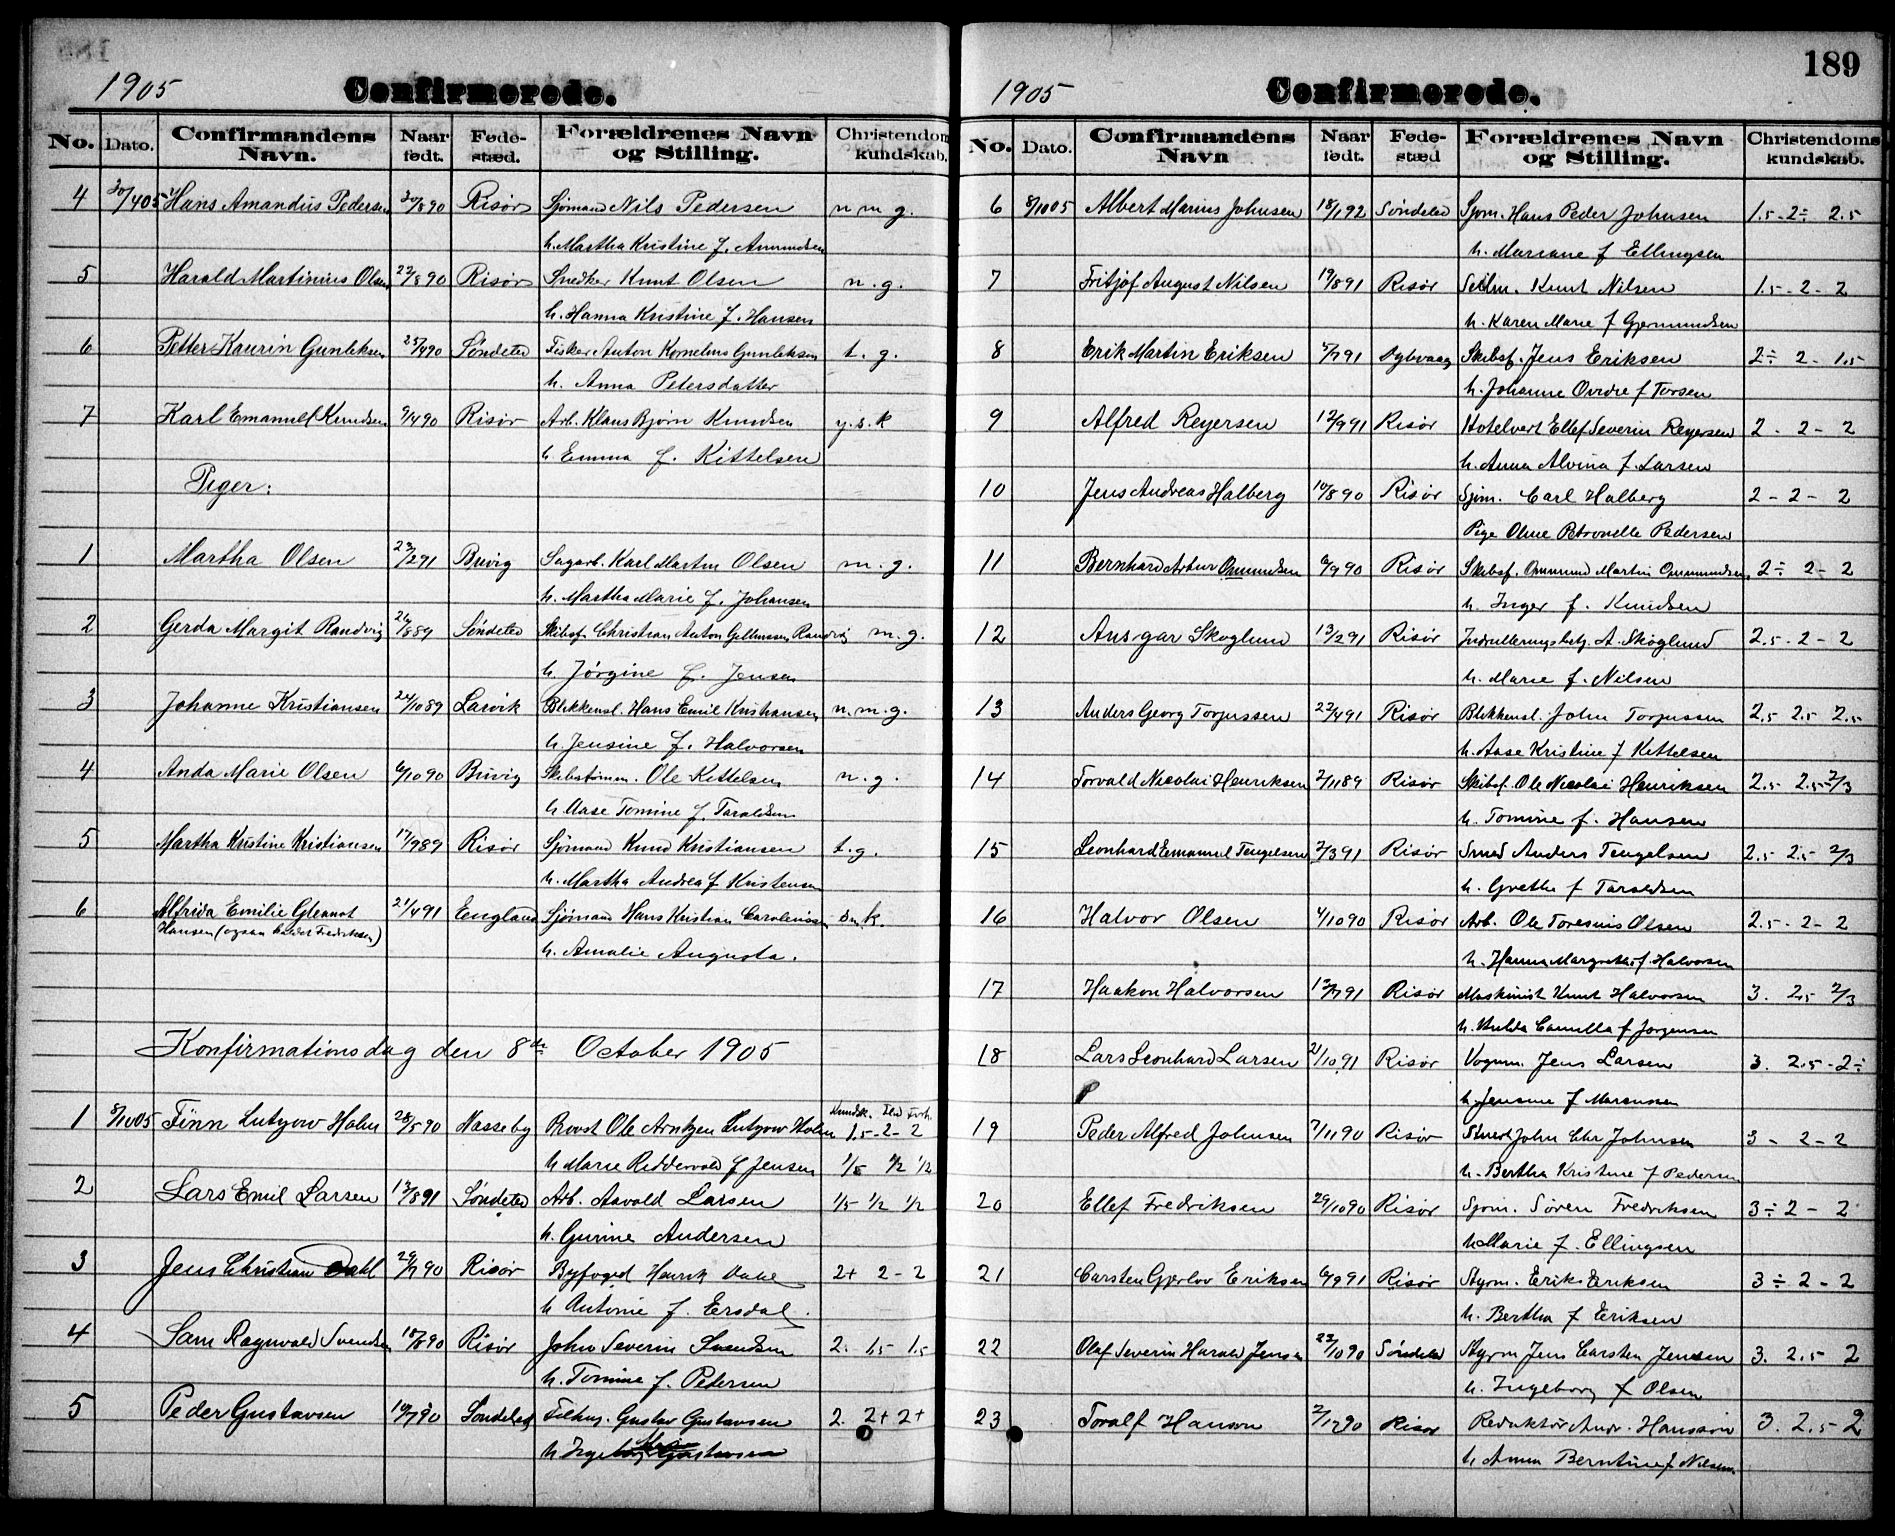 189
1905
Confirmerede.
No. Dato. Confirmandens Navn. Naar født. Føde-stæd. Forældrenes Navn og Stilling. Christendoms kundskab.
4 30/4 05 Hans Amandus Pedersen 30/8 90 Risør Sjømand Nils Pedersen n m g.
h. Martha Kristine f. Amundsen
5 Harald Martinius Olsen 22/8 90 Risør Snedker Knut Olsen n. g.
h. Hanna Kristine f. Hansen
6 Petter Kaurin Gunleksen 25/4 90 Søndeled Fisker Anton Kornelius Gunleksen t. g.
h. Anna Petersdatter
7 Karl Emanuel Knudsen 9/4 90 Risør Arb. Klaus Bjørn Knudsen
h Emma f. Kittelsen
Piger:
1 Martha Olsen 23/2 91 Buvig Sagarb. Karl Martin Olsen m. g.
h. Martha Marie f. Johansen
2 Gerda Margit Randvig 26/8 89 Søndeled Skibsf. Christian Anton Randvig m. g.
h. Jørgine f. Jensen
3 Johanne Kristiansen 24/10 89 Larvik Blikkensl. Hans Emil Kristiansen n. m. g.
h. Jensine f. Halvorsen
4 Anda Marie Olsen 6/10 90 Buvig Skibstømm. Ole Kittelsen n. g.
h. Aase Tomine f. Taraldsen
5 Martha Kristine Kristiansen 17/9 89 Risør Sjømand Knud Kristiansen t. g.
h. Martha Andrea f Kristensen
6 Alfrida Emilie 21/4 91 England Sjømand Hans Kristian
Hansen (ogsaa kaldet Fredriksen)
h. Amalie Augusta.
Konfirmationsdag den 8de October 1905
Kundsk. Flid Forh.
1 8/10 05 Finn Lutzow Holm 28/5 90 Næsseby Provst Ole Arntzen Lutzow Holm 1.5 - 2 - 2
h Marie Reddervold f Jensen 1/5 1/2 1/2
2 Lars Emil Larsen 13/8 91 Søndeled Arb. Aavald Larsen 1/5 1/2 1/2
h. Gurine Andersen
3 Jens Christian Dahl 29/7 90 Risør Byfoged Henrik Dahl 2+ 2 - 2
h Antonie f. Ersdal.
4 Sam Ragnvald Svendsen 18/8 90 Risør John Severin Svendsen 2. 1.5 1.5
h. Tomine f. Petersen
5 Peder Gustavsen 10/7 90 Søndeled Gustav Gustavsen 2. 2+ 2+
h Ingeborg Gustavsen
1905
Confirmerede.
No. Dato. Confirmandens Navn Naar født. Føde-stæd Forældrenes Navn og Stilling. Christendoms kundskab.
6 8/10 05 Albert Marius Johnsen 18/1 92 Søndeled Sjøm. Hans Peder Johnsen 1.5 - 2 ÷ 2.5
h. Mariane f Ellingsen
7 Fritjof August Nilsen 19/8 91 Risør Seilm. Knut Nilsen 1.5 - 2 - 2
h. Karen Marie f Gjermundsen
8 Erik Martin Eriksen 5/7 91 Dybvaag Skibsf. Jens Eriksen 2 ÷ 2 - 1.5
h. Johanne Ovidre f Torsen
9 Alfred Reyersen 12/9 91 Risør Hotelvert Ellef Severin Reyersen 2 - 2 - 2
h. Anna Alvina f. Larsen
10 Jens Andreas Halberg 10/8 90 Risør Sjøm. Carl Halberg 2 - 2 - 2
Pige Oline Petronelle Pedersen
11 Bernhard Artur Ommundsen 6/9 90 Risør Skibsf. Ommund Martin Ommundsen 2 ÷ 2 - 2
h. Inger f. Knudsen
12 Ansgar Skoglund 13/2 91 Risør Indrulleringsbetj. A. Skoglund 2.5 - 2 - 2
h. Marie f. Nilsen
13 Anders Georg Torjussen 22/4 91 Risør Blikkensl. John Torjussen 2.5 2.5 2.5
h. Aase Kristine f Kittelsen
14 Torvald Nicolai Henriksen 2/11 89 Risør Skibsf. Ole Nicolai Henriksen 2.5 2.5 - 2/3
h. Tomine f. Hansen
15 Leonhard Emanuel Tengelsen 2/3 91 Risør Smed Anders Tengelsen 2.5 2.5 2/3
h. Grethe f Taraldsen
16 Halvor Olsen 4/10 90 Risør Arb. Ole Toresius Olsen 2.5 - 2 - 2
h. Hanna Margrethe f. Halvorsen
17 Haakon Halvorsen 13/7 91 Risør Maskinist Knut Halvorsen 3. 2.5 2/3
h. Hulda Camilla f Jørgensen
18 Lars Leonhard Larsen 21/10 91 Risør Vognm. Jens Larsen 3. 2.5 - 2 ÷
h. Jensine f Marcussen
19 Peder Alfred Johnsen 7/11 90 Risør Smed John Chr Johnsen 3 - 2 - 2
h. Bertha Kristine f Pedersen
20 Ellef Fredriksen 29/10 90 Risør Sjøm. Søren Fredriksen 3 ÷ 2 - 2
h Marie f. Ellingsen
21 Carsten Gjerlov Eriksen 6/9 91 Risør Styrm. Erik Eriksen 3 ÷ 2 - 2
h. Bertha f Eriksen
22 Olaf Severin Harald Jensen 23/10 90 Søndeled Styrm Jens Carsten Jensen 3. 2.5 2
h. Ingeborg f Olsen
23 Toralf Hanson 2/12 90 Risør Redaktør Andr. Hansson 3. 2.5 - 2
h Anna Berntine f Nilsen